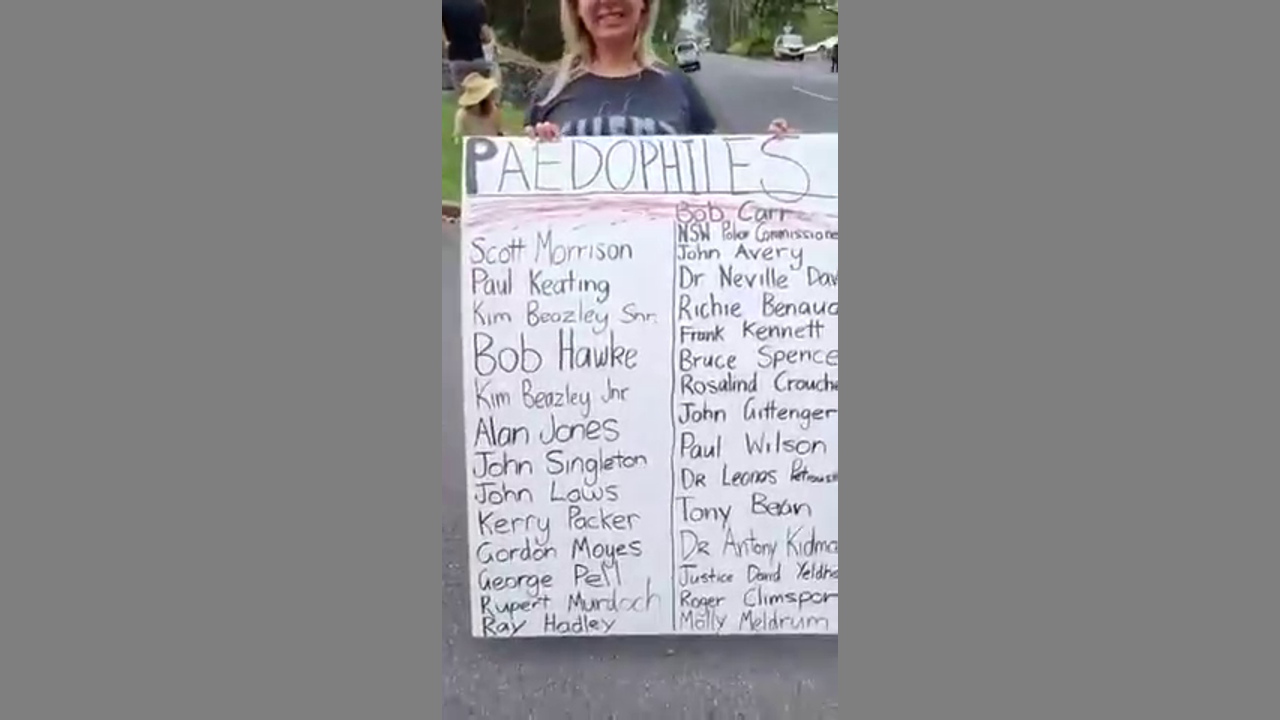 PAEDOPHILES
Scott Morrison
Paul Keating
Kim Beazley Snr.
Bob Hawke
Kim Beazley Jnr
Alan Jones
John Singleton
John Laws
Kerry Packer
Gordon Moyes
George Pell
Rupert Murdoch
Ray Hadley
Bob Carr
NSW Police Commissione
John Avery
Dr Neville Dav
Richie Benaud
Frank Kennett
Bruce Spence
Rosalind Crouche
John Gittenger
Paul Wilson
DR Leonas
Tony Bean
DR Antony Kidma
Justice David Yeldha
Roger Climspor
Molly Meldrum